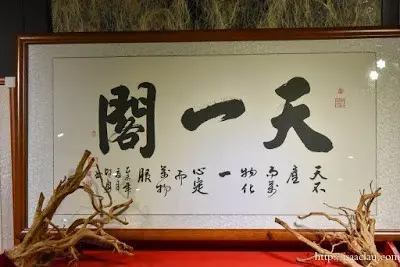 天一閣
天不
產
而萬
物化
一
心定
而
萬物
服